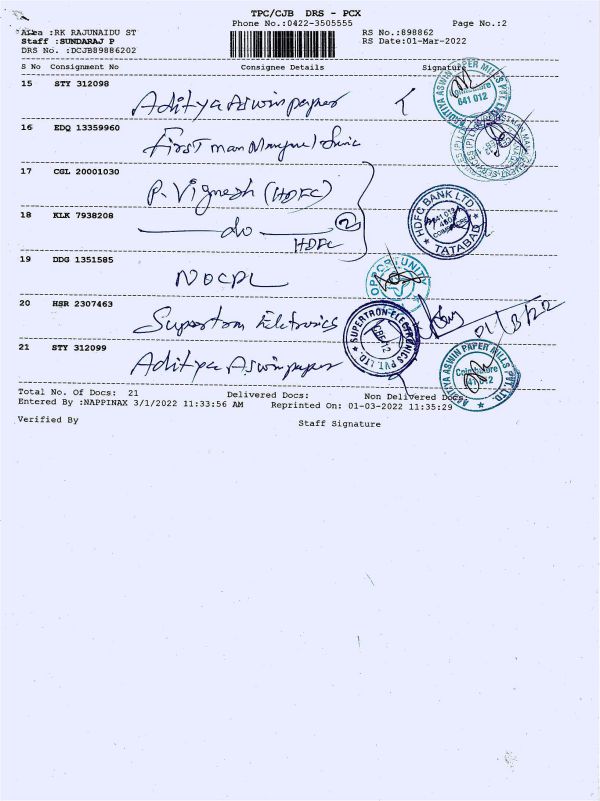 TPC/CJB DRS - PCX
Phone No.:0422-3505555 Page No.:2
Area :RK RAJUNAIDU ST RS No.:898862
Staff :SUNDARAJ P RS Date:01-Mar-2022
DRS No. :DCJB89886202
S No Consignment No Consignee Details Signature
15 STY 312098
Aditya Aswin paper
ADITIYA ASWIN PAPER MILLS PVT. LTD.
Coimbatore
641 012
16 EDQ 13359960
First man
17 CGL 20001030
P. Vignesh (HDFC)
18 KLK 7938208
do 2
HDFC
HDFC BANK LTD
TATABAD
19 DDG 1351585
NOCPL
OPPORTUNITY
20 HSR 2307463
Supertron Eletronics
SUPERTRON ELECTRONICS PVT. LTD.
CBE-12
01/3/22
21 STY 312099
Aditya Aswin paper
ADITIYA ASWIN PAPER MILLS PVT. LTD.
Coimbatore
641 012
Total No. Of Docs: 21 Delivered Docs: Non Delivered Docs:
Entered By :NAPPINAX 3/1/2022 11:33:56 AM Reprinted On: 01-03-2022 11:35:29
Verified By Staff Signature